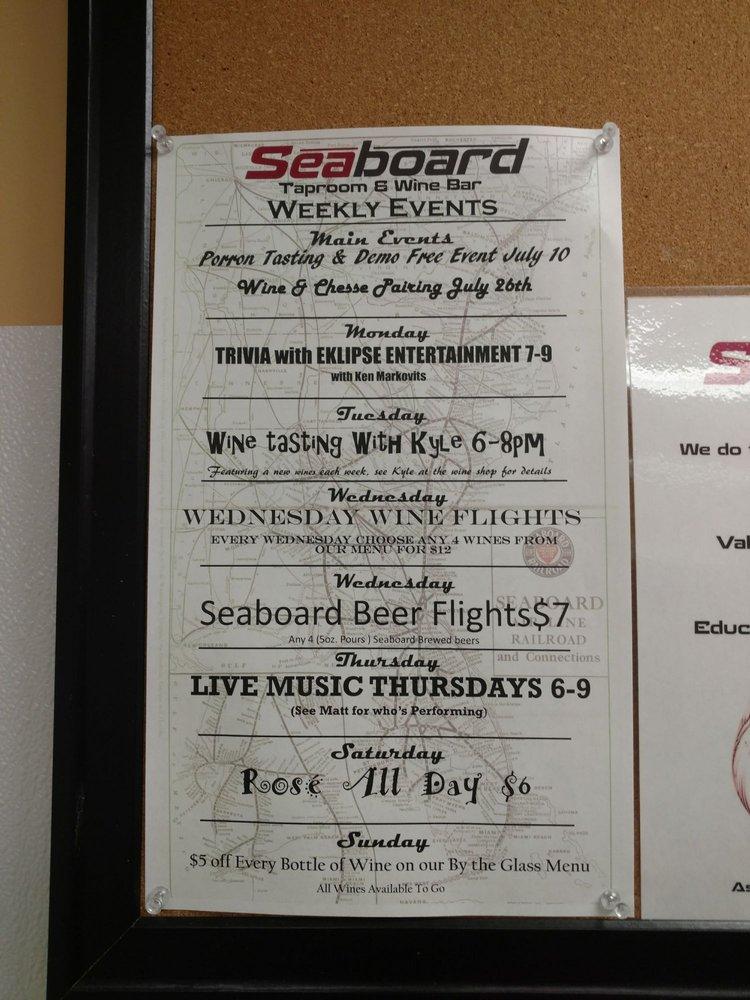 Seaboard
Taproom & Wine Bar
WEEKLY EVENTS
Main Events
Porron Tasting & Demo Free Event July 10
Wine & Chesse Pairing July 26th
Monday
TRIVIA with EKLIPSE ENTERTAINMENT 7-9
with Ken Markovits
Tuesday
Wine tasting With Kyle 6-8pM
Featuring a new wines each week, see Kyle at the wine shop for details
Wednesday
WEDNESDAY WINE FLIGHTS
EVERY WEDNESDAY CHOOSE ANY 4 WINES FROM
OUR MENU FOR $12
Wednesday
Seaboard Beer Flights$7
Any 4 (5oz. Pours ) Seaboard Brewed beers
SEABOARD
RAILROAD
and Connections
Thursday
LIVE MUSIC THURSDAYS 6-9
(See Matt for who's Performing)
Saturday
Rosé All Day $6
Sunday
$5 off Every Bottle of Wine on our By the Glass Menu
All Wines Available To Go
HAVANA
S
We do
Val
Educ
As